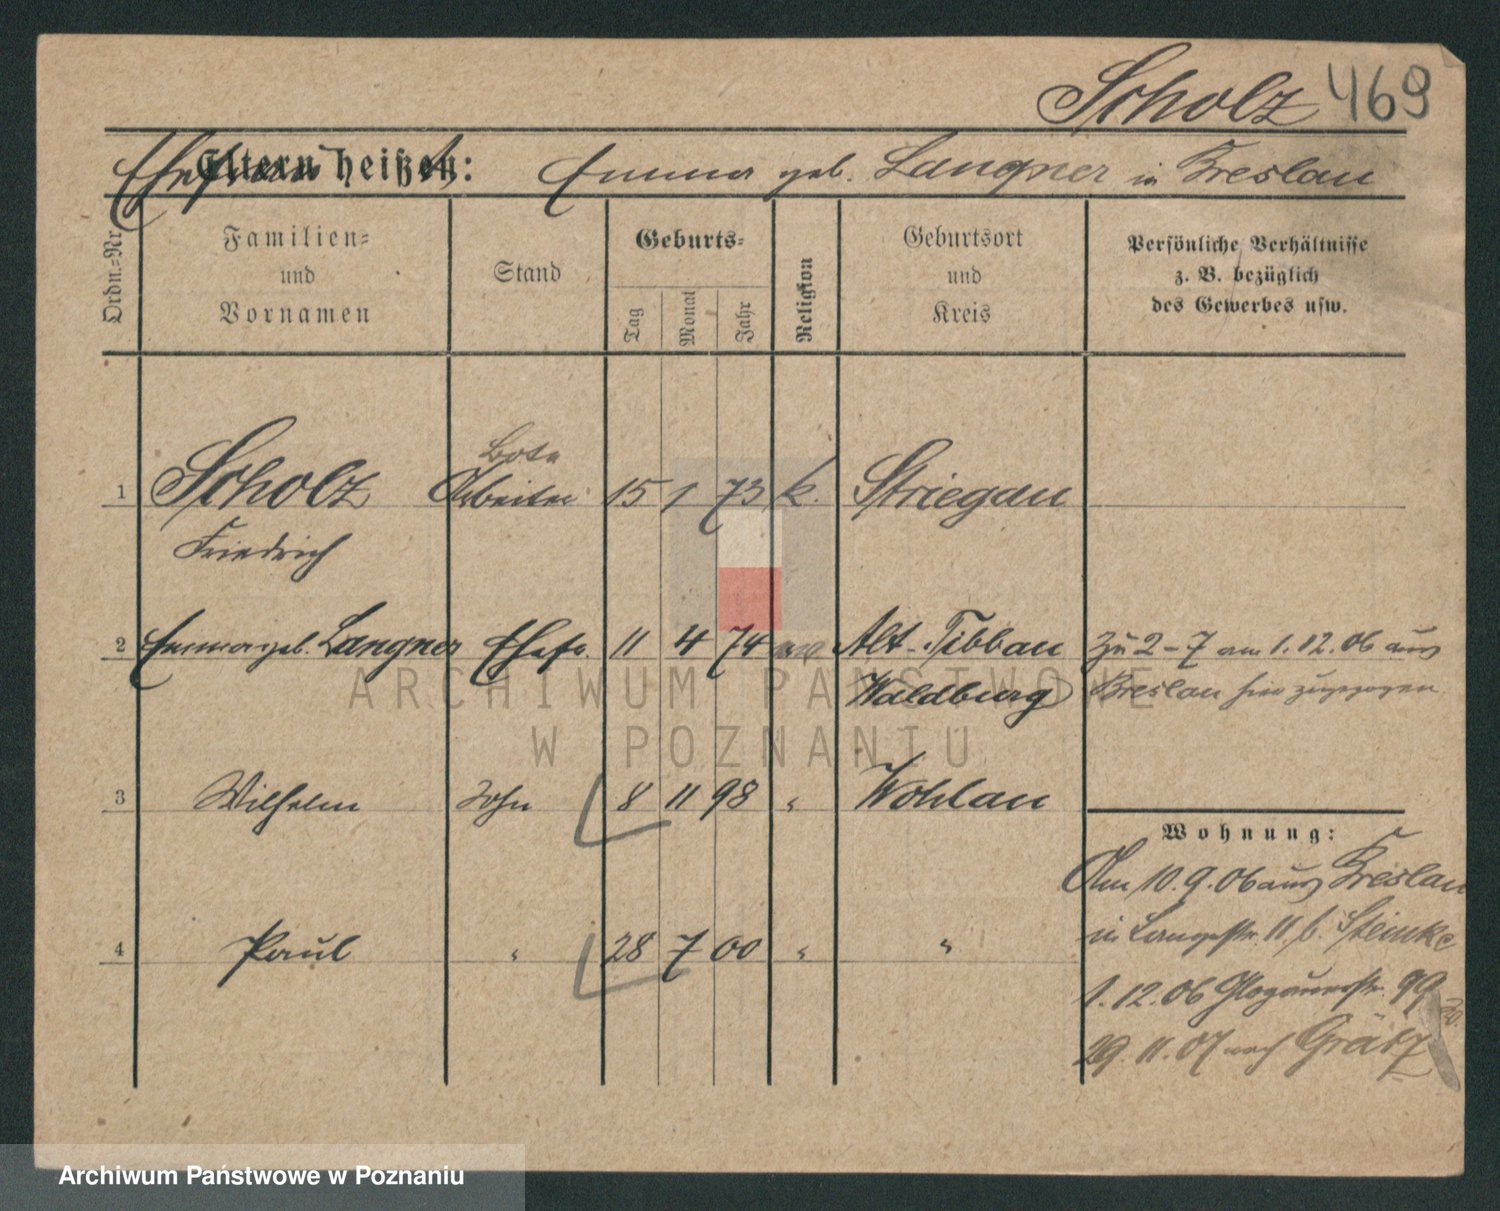 Scholz 469
Eltern heißen: Ehefrau Emma geb. Langner in Breslau
Ordn.=Nr.
Familien=
und
Vornamen
Stand
Geburts=
Tag
Monat
Jahr
Religion
Geburtsort
und
Kreis
Persönliche Verhältnisse
z. B. bezüglich
des Gewerbes usw.
Bote
1 Scholz Arbeiter 15 1 73 k. Striegau
Friedrich
2 Emma geb. Langner Ehefr. 11 4 74 Alt-Tibbau zu 2-7 am 1.12.06 aus
Waldburg Breslau hier zugezogen
3 Wilhelm Sohn 8 11 98 " Wohlau
Wohnung:
Am 10.9.06 aus Breslau
in Langestr. 11 b. Steinke
4 Paul " 28 7 00 " "
1.12.06 Glogauerstr. 99
29.11.07 nach Grätz
ARCHIWUM PAŃSTWOWE
W POZNANIU
Archiwum Państwowe w Poznaniu